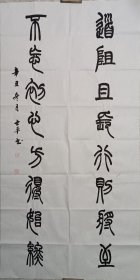 道阻且長行則將至
不忘初心方得始終
辛丑